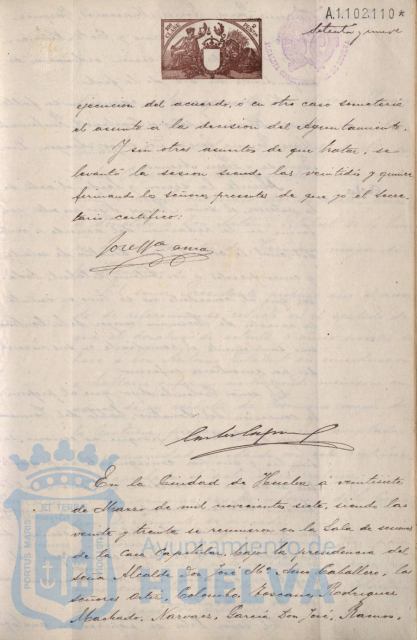 A.1.102.110*
setenta y nueve
ejecucion del acuerdo, ó en otro caso someteria
el asunto á la decision del Ayuntamiento.
Y sin otros asuntos de que tratar, se
levantó la sesion siendo las veintidos y quince
firmando los señores presentes de que yo el Secre-
tario certifico:
En la Ciudad de Huelva a veintisiete
de Marzo de mil novecientos siete, siendo las
veinte y treinta se reunieron en la Sala de sesiones
de la Casa Capitular, bajo la presidencia del
señor Alcalde Don José Mª. Caballero, los
señores Ortiz, Colombo, Toscano, Rodriguez
Machado, Narvaez, Garcia Don José, Ramos,
PORTUS MARIS
ET TERRAE
Ayuntamiento de
HUELVA